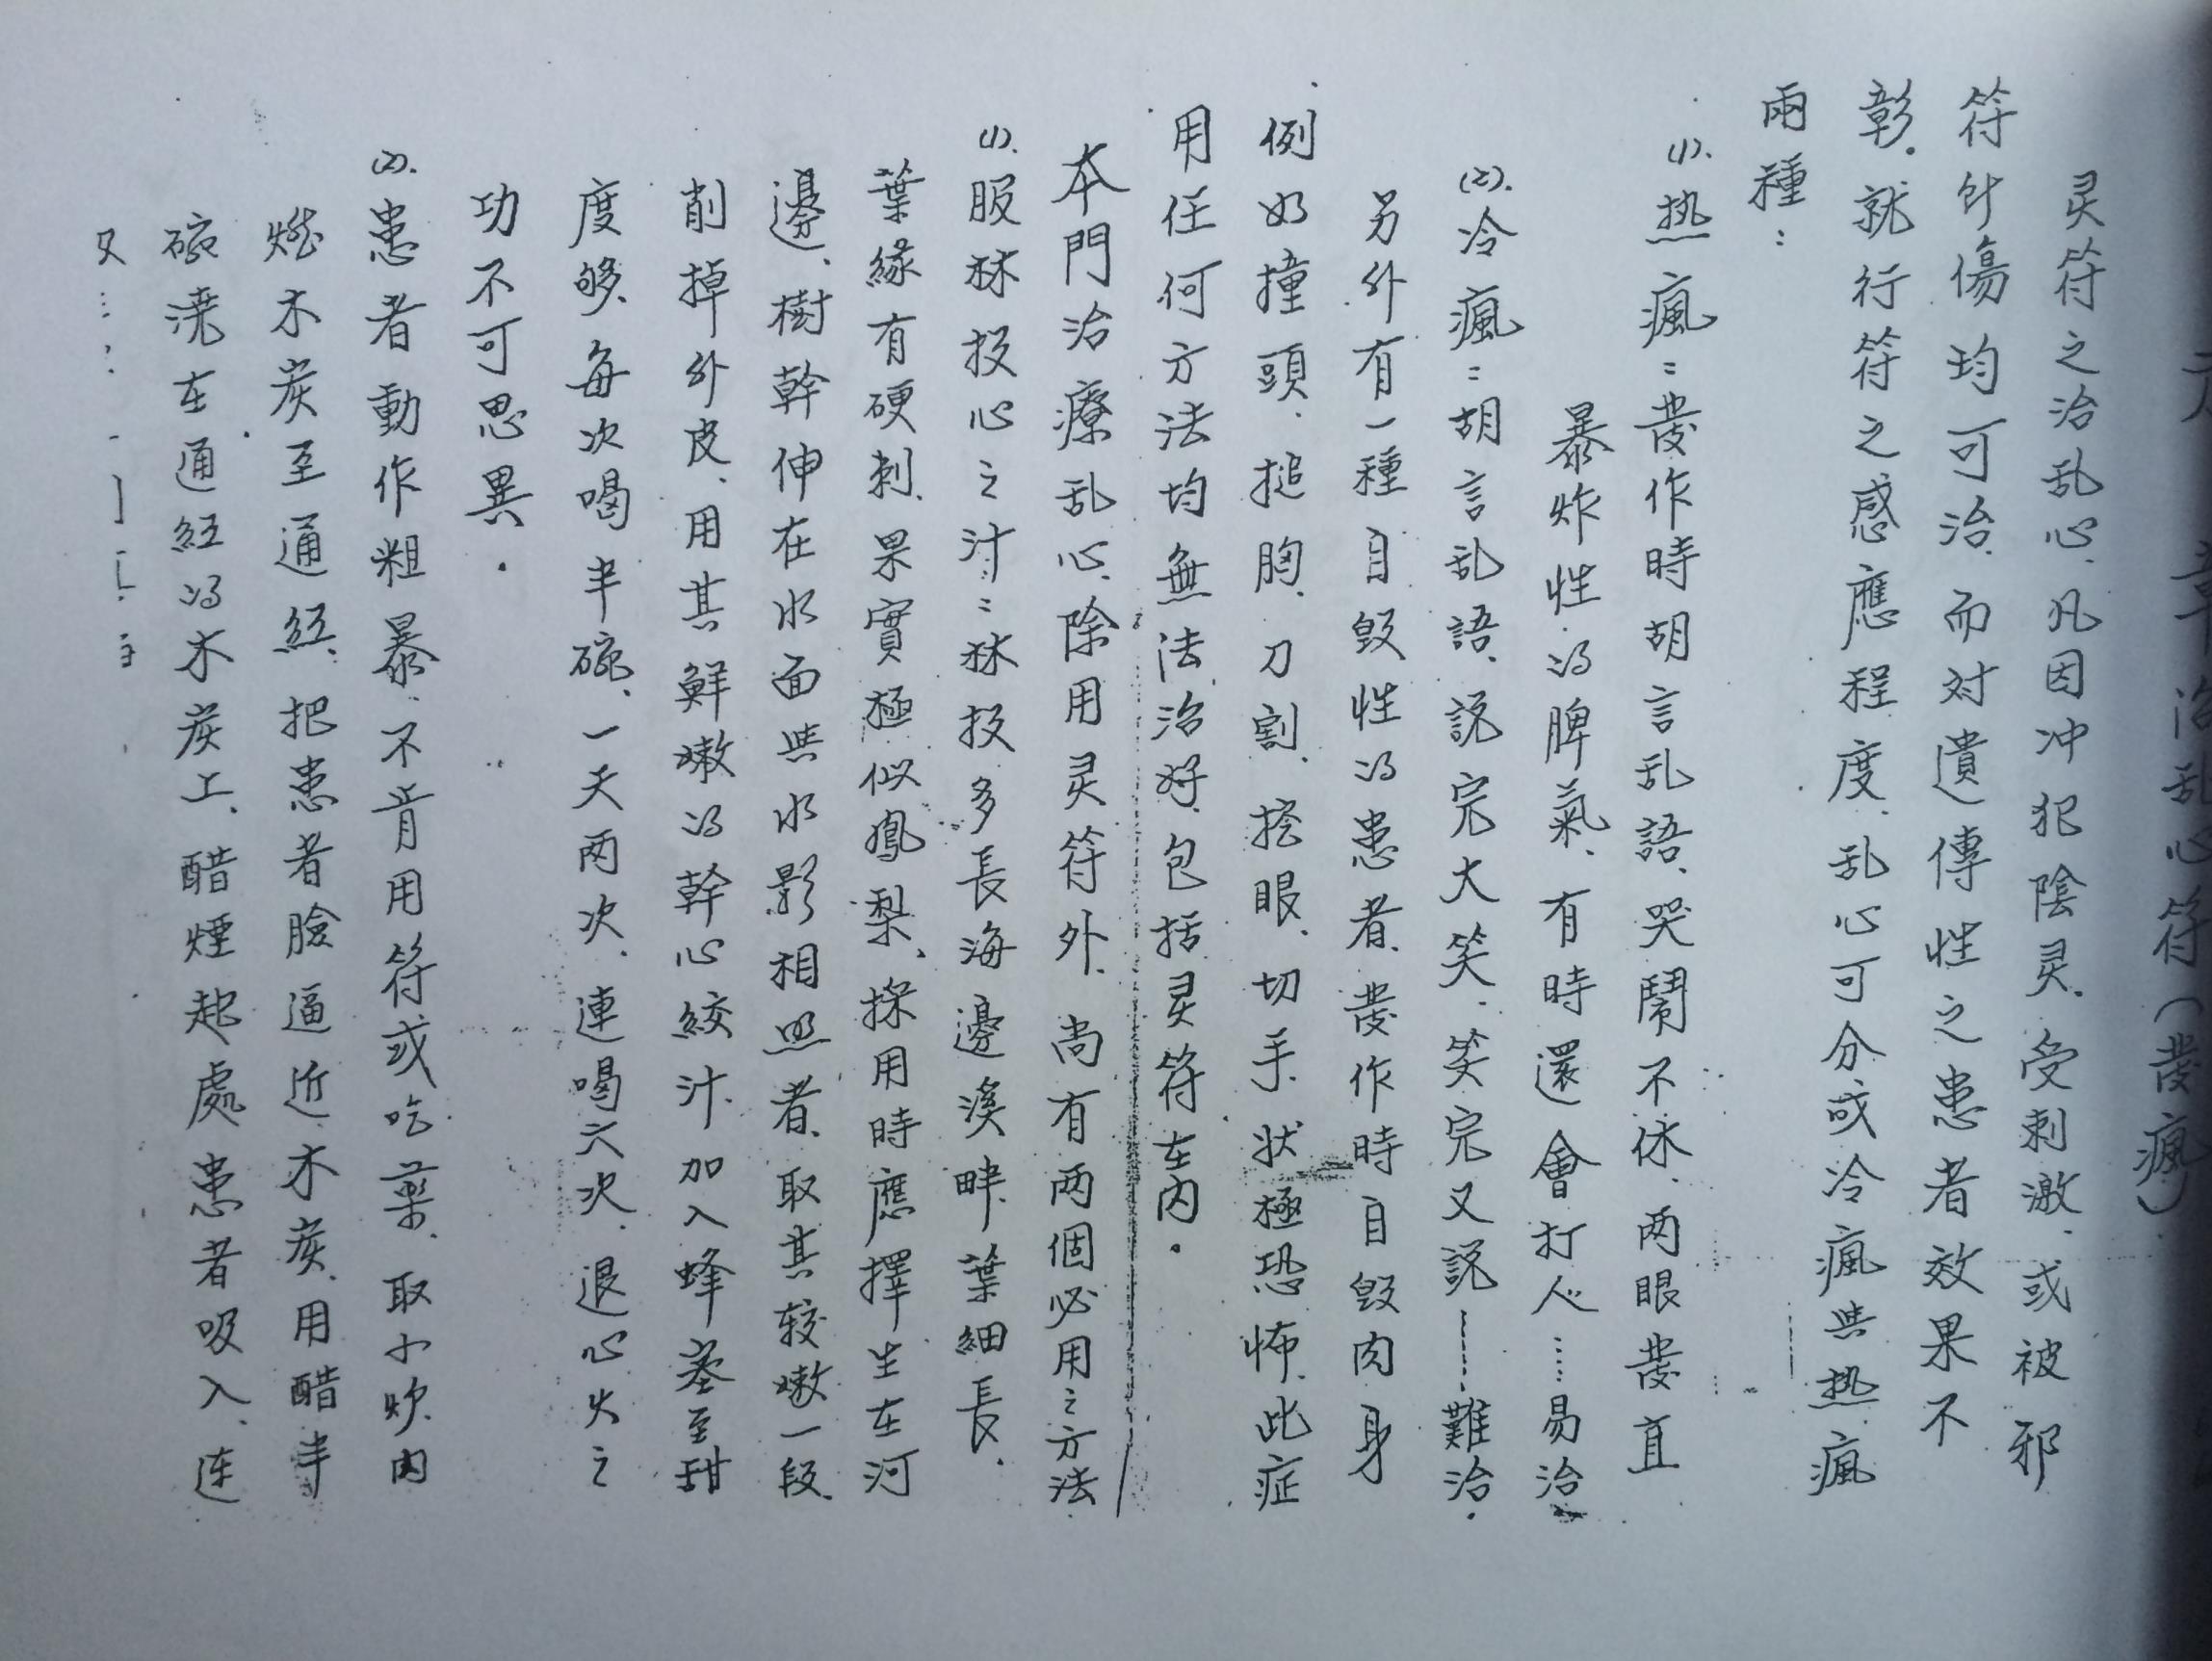 章治乱心符（發瘋）
灵符之治乱心、凡因冲犯陰灵、受刺激、或被邪
符針傷均可治、而对遺傳性之患者效果不
彰、就行符之感應程度、乱心可分成冷瘋与热瘋
兩種：
(1).热瘋：發作時胡言乱語、哭鬧不休、两眼發直
暴炸性的脾氣、有時還會打人……易治
(2).冷瘋：胡言乱語、説完大笑、笑完又説……難治.
另外有一種自毀性的患者、發作時自毀肉身
例如撞頭、搥胸、刀割、挖眼、切手、状極恐怖、此症
用任何方法均無法治好、包括灵符在内.
本門治療乱心、除用灵符外、尚有两個必用之方法
(1).服秝投心之汁：秝投多長海邊溪畔、葉細長、
葉緣有硬刺、果實極似鳳梨、採用時應擇生在河
邊、樹幹伸在水面与水影相照者、取其较嫩一段、
削掉外皮、用其鮮嫩的幹心絞汁、加入蜂蜜至甜
度够、每次喝半碗、一天两次、連喝六次、退心火之
功不可思異.
(2).患者動作粗暴、不肯用符或吃藥、取小炊内
燃木炭至通紅、把患者臉逼近木炭、用醋半
碗澆在通紅的木炭上、醋煙起處患者吸入、连